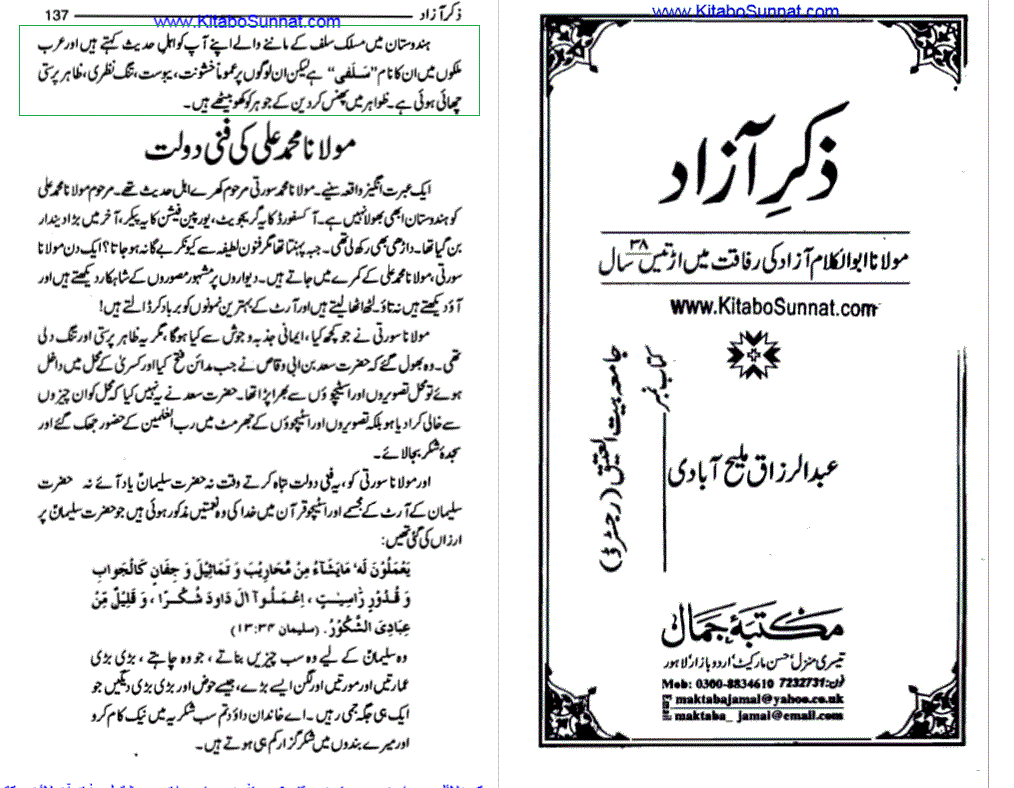 ذکر آزاد 137
www.KitaboSunnat.com
ہندوستان میں مسلک سلف کے ماننے والے اپنے آپ کو اہل حدیث کہتے ہیں اور عرب
ملکوں میں ان کا نام "سَلَفی" ہے لیکن ان لوگوں پر عموماً خشونت، یبوست، تنگ نظری، ظاہر پرستی
چھائی ہوئی ہے۔ ظواہر میں پھنس کر دین کے جوہر کو کھو بیٹھے ہیں۔
مولانا محمد علی کی فنی دولت
ایک عبرت انگیز واقعہ سنیے۔ مولانا محمد سورتی مرحوم کھرے اہل حدیث تھے۔ مرحوم مولانا محمد علی
کو ہندوستان ابھی بھولا نہیں ہے۔ آکسفورڈ کا یہ گریجویٹ، یورپین فیشن کا یہ پیکر، آخر میں بڑا دیندار
بن گیا تھا۔ داڑھی بھی رکھ لی تھی۔ جبہ پہنتا تھا مگر فنون لطیفہ سے کیونکر بے گانہ ہو جاتا؟ ایک دن مولانا
سورتی، مولانا محمد علی کے کمرے میں جاتے ہیں۔ دیواروں پر مشہور مصوروں کے شاہکار دیکھتے ہیں اور
آؤ دیکھتے ہیں نہ تاؤ۔ لٹھ اٹھا لیتے ہیں اور آرٹ کے بہترین نمونوں کو برباد کر ڈالتے ہیں!
مولانا سورتی نے جو کچھ کیا، ایمانی جذبہ و جوش سے کیا ہوگا، مگر یہ ظاہر پرستی اور تنگ دلی
تھی۔ وہ بھول گئے کہ حضرت سعد بن ابی وقاص نے جب مدائن فتح کیا اور کسریٰ کے محل میں داخل
ہوئے تو محل تصویروں اور اسٹیچوؤں سے بھرا پڑا تھا۔ حضرت سعد نے یہ نہیں کیا کہ محل کو ان چیزوں
سے خالی کرا دیا ہو بلکہ تصویروں اور اسٹیچوؤں کے جھرمٹ میں رب العٰلمین کے حضور جھک گئے اور
سجدۂ شکر بجا لائے۔
اور مولانا سورتی کو، یہ فنی دولت تباہ کرتے وقت نہ حضرت سلیمانؑ یاد آئے نہ حضرت
سلیمان کے آرٹ کے مجسمے اور اسٹیچو قرآن میں خدا کی وہ نعمتیں مذکور ہوئی ہیں جو حضرت سلیمانؑ پر
ارزاں کی گئی تھیں:
یَعْمَلُوْنَ لَهٗ مَایَشَآءُ مِنْ مَّحَارِیْبَ وَ تَمَاثِیْلَ وَ جِفَانٍ کَالْجَوَابِ
وَ قُدُوْرٍ رّٰسِیٰتٍ ، اِعْمَلُوْآ اٰلَ دَاوٗدَ شُکْرًا ، وَ قَلِیْلٌ مِّنْ
عِبَادِیَ الشَّکُوْرُ. (سلیمان ۳۴:۱۳)
وہ سلیمانؑ کے لیے وہ سب چیزیں بناتے ، جو وہ چاہتے ، بڑی بڑی
عمارتیں اور مورتیں اور لگن ایسے بڑے، جیسے حوض اور بڑی بڑی دیگیں جو
ایک ہی جگہ جمی رہیں۔ اے خاندان داؤد تم سب شکریہ میں نیک کام کرو
اور میرے بندوں میں شکر گزار کم ہی ہوتے ہیں۔
www.KitaboSunnat.com
ذکرِ آزاد
مولانا ابوالکلام آزاد کی رفاقت میں اڑتیس ۳۸ سال
www.KitaboSunnat.com
کتاب نمبر
جامعہ بیت العتیق (رجسٹرڈ)
عبدالرزاق ملیح آبادی
مکتبۂ جمال
تیسری منزل، حسن مارکیٹ، اردو بازار، لاہور
Mob: 0300-8834610 فون: 7232731
maktabajamal@yahoo.co.uk
maktaba_ jamal@email.com